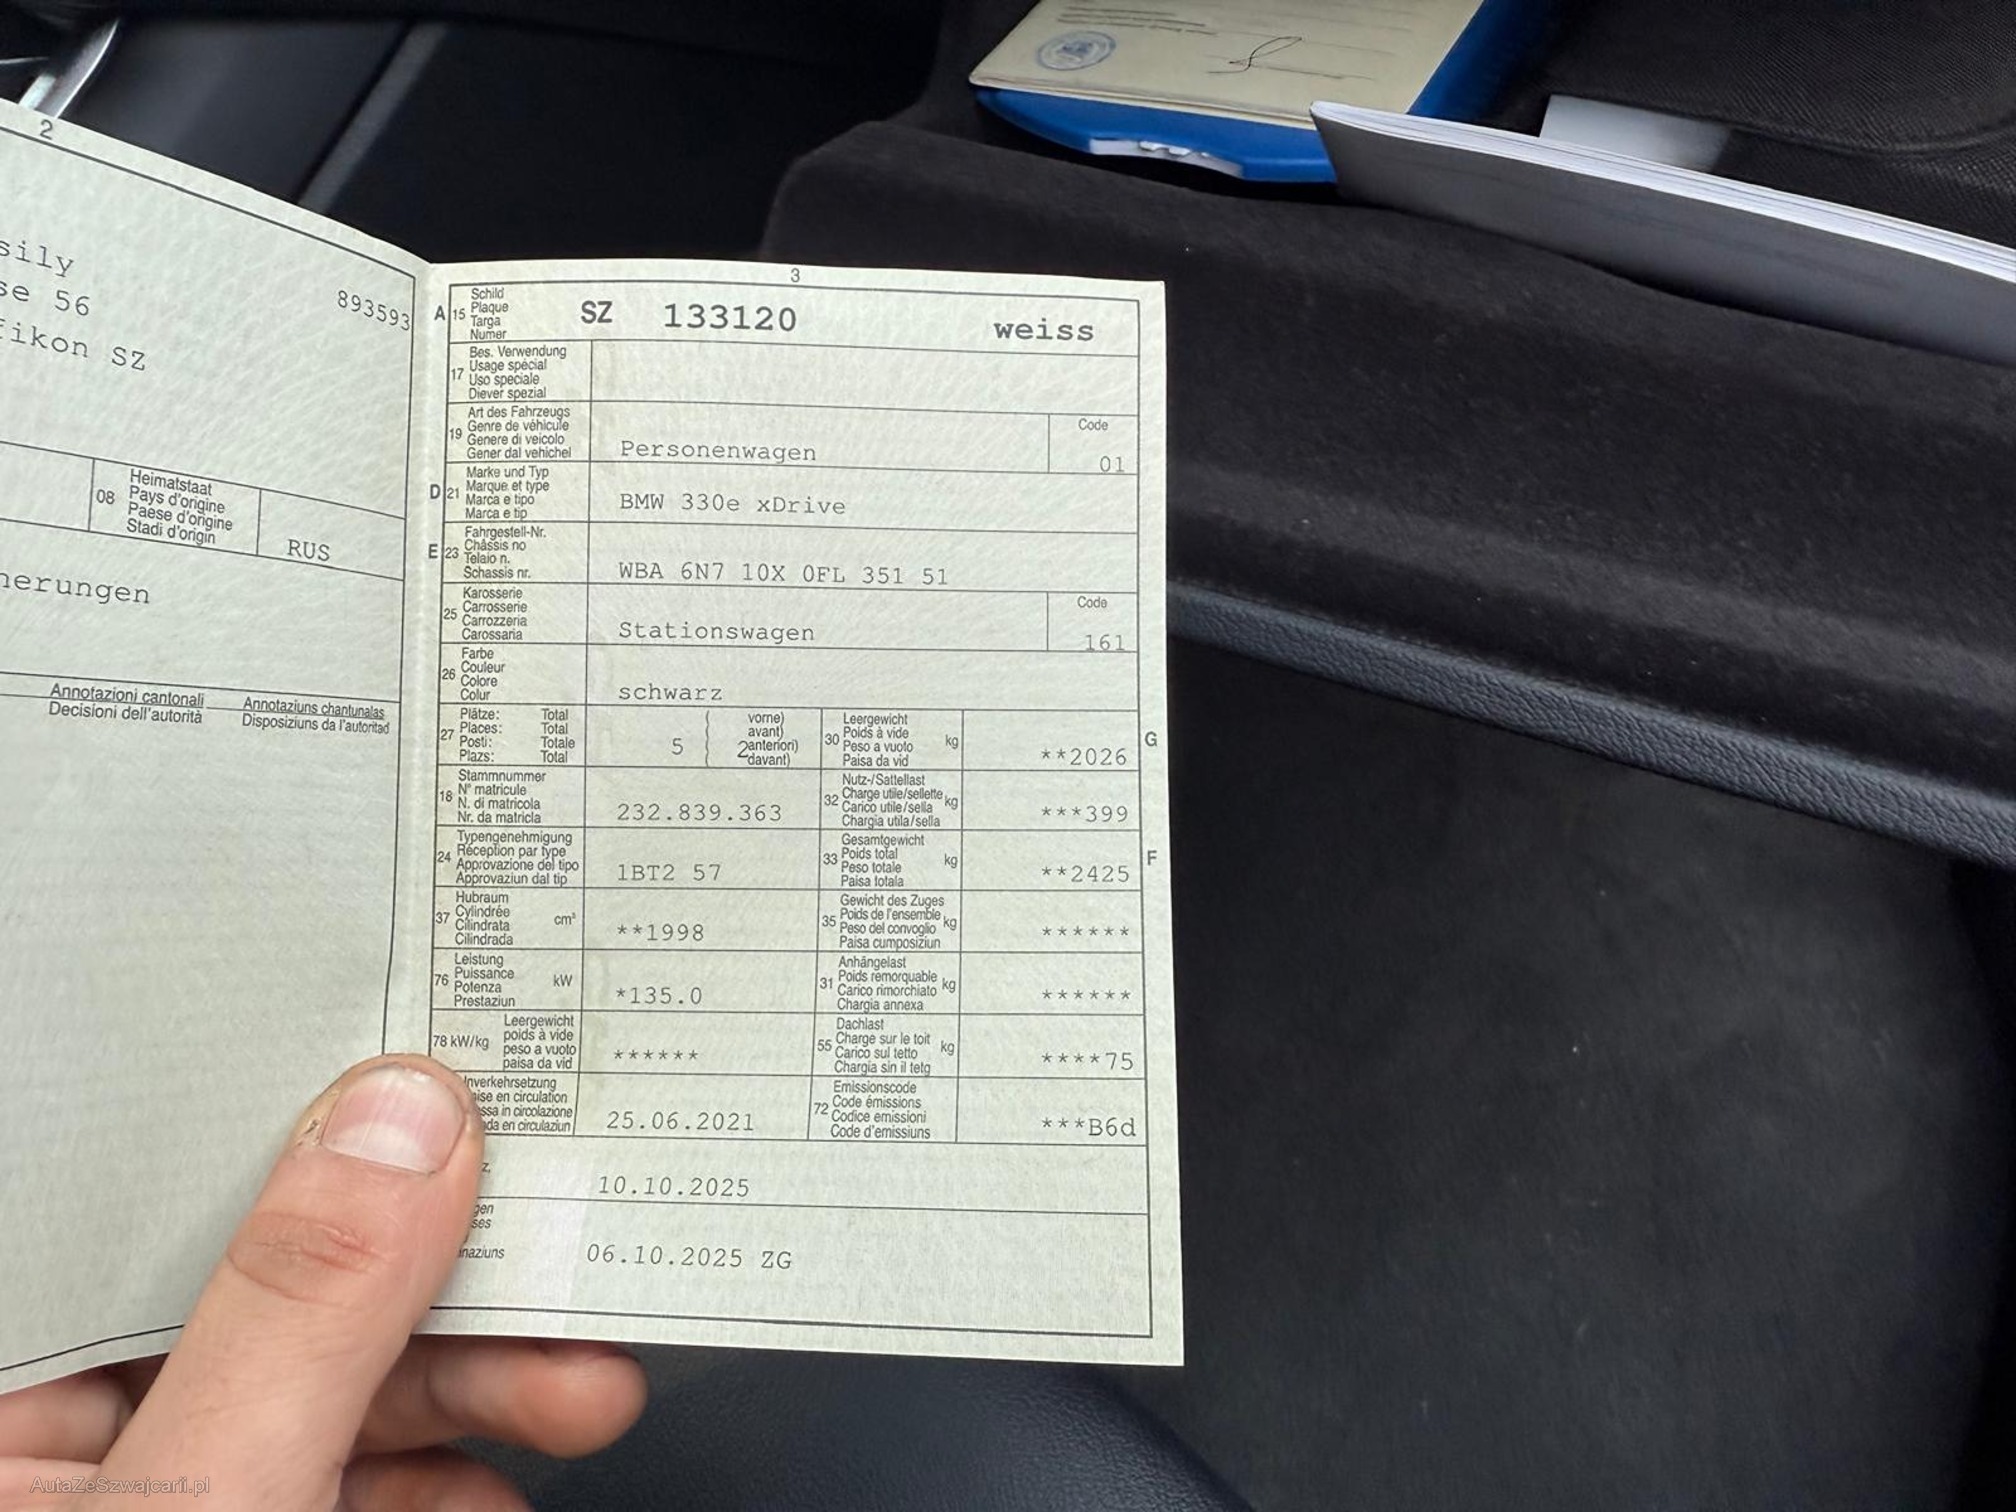 2
sily
se 56
893593
fikon SZ
08
Heimatstaat
Pays d'origine
Paese d'origine
Stadi d'origin
RUS
nerungen
Annotazioni cantonali
Decisioni dell'autorità
Annotaziuns chantunalas
Disposiziuns da l'autoritad
3
A 15 Schild
Plaque
Targa
Numer
SZ 133120 weiss
17 Bes. Verwendung
Usage spécial
Uso speciale
Diever spezial
19 Art des Fahrzeugs
Genre de véhicule
Genere di veicolo
Gener dal vehichel
Personenwagen
Code
01
D 21 Marke und Typ
Marque et type
Marca e tipo
Marca e tip
BMW 330e xDrive
E 23 Fahrgestell-Nr.
Châssis no
Telaio n.
Schassis nr.
WBA 6N7 10X 0FL 351 51
25 Karosserie
Carrosserie
Carrozzeria
Carossaria
Stationswagen
Code
161
26 Farbe
Couleur
Colore
Colur
schwarz
27 Plätze: Total
Places: Total
Posti: Totale
Plazs: Total
5
( vorne)
avant)
2 anteriori)
( davant)
30 Leergewicht
Poids à vide
Peso a vuoto
Paisa da vid
kg
**2026
G
18 Stammnummer
N° matricule
N. di matricola
Nr. da matricla
232.839.363
32 Nutz-/Sattellast
Charge utile/sellette
Carico utile/sella
Chargia utila/sella
kg
***399
24 Typengenehmigung
Réception par type
Approvazione del tipo
Approvaziun dal tip
1BT2 57
33 Gesamtgewicht
Poids total
Peso totale
Paisa totala
kg
**2425
F
37 Hubraum
Cylindrée
Cilindrata
Cilindrada
cm³
**1998
35 Gewicht des Zuges
Poids de l'ensemble
Peso del convoglio
Paisa cumposiziun
kg
******
76 Leistung
Puissance
Potenza
Prestaziun
kW
*135.0
31 Anhängelast
Poids remorquable
Carico rimorchiato
Chargia annexa
kg
******
78 kW/kg
Leergewicht
poids à vide
peso a vuoto
paisa da vid
******
55 Dachlast
Charge sur le toit
Carico sul tetto
Chargia sin il tetg
kg
****75
Inverkehrsetzung
ise en circulation
ssa in circolazione
da en circulaziun
25.06.2021
72 Emissionscode
Code émissions
Codice emissioni
Code d'emissiuns
***B6d
z.
10.10.2025
gen
ses
naziuns
06.10.2025 ZG
AutaZeSzwajcarii.pl